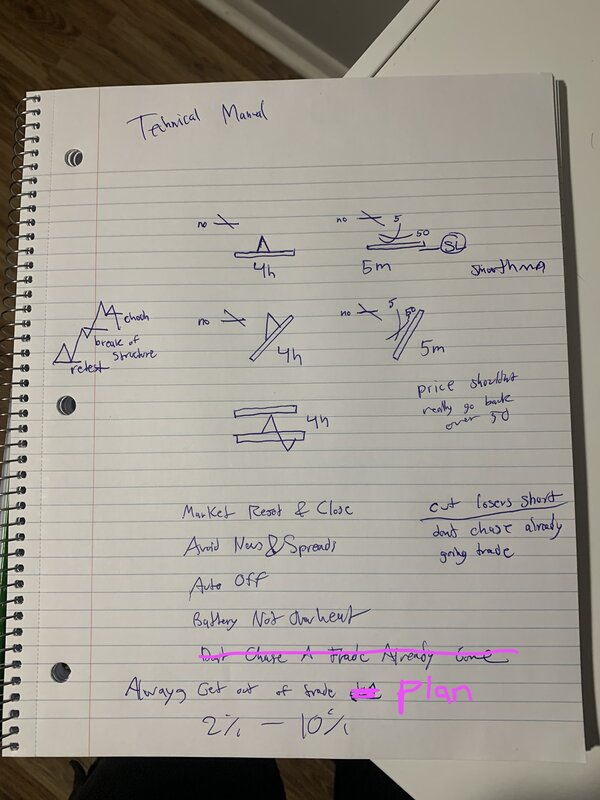 Technical Manual
no
4h
no 5 50 SL
5m
Shorthma
choch
break of
structure
retest
no
4h
no 5 50
5m
4h
price shouldnt
really go back
over 50
Market Reset & Close
Avoid News & Spreads
Auto Off
Battery Not Overheat
Dont Chase A Trade Already Gone
cut losers short
dont chase already
going trade
Always Get out of trade Plan
2% - 10%